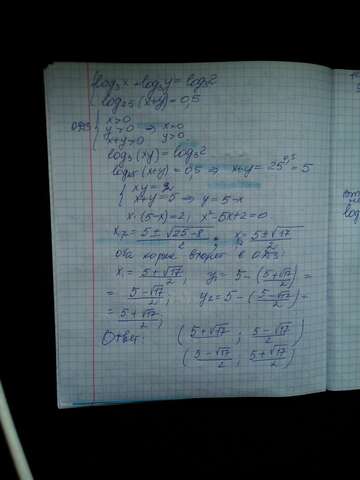 log₃x + log₃y = log₃2
log₂₅(x+y) = 0,5
ОДЗ { x>0
y>0 ⇒ x>0
x+y>0 y>0
log₃(xy) = log₃2
log₂₅(x+y) = 0,5 ⇒ x+y = 25^0,5 = 5
{ xy = 2
x+y = 5 ⇒ y = 5-x
x·(5-x)=2; x²-5x+2=0
x = (5±√25-8)/2; x = (5±√17)/2
оба корня входят в ОДЗ:
x₁ = (5+√17)/2; y₁ = 5 - ((5+√17)/2) =
= (5-√17)/2; y₂ = 5 - ((5-√17)/2) =
= (5+√17)/2;
Ответ: ((5+√17)/2; (5-√17)/2)
((5-√17)/2; (5+√17)/2)
log